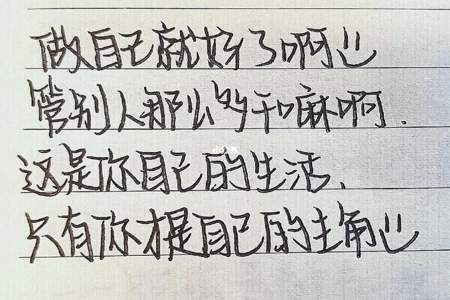 做自己就好了啊
管别人那么多干嘛啊.
这是你自己的生活、
只有你才是自己的主角